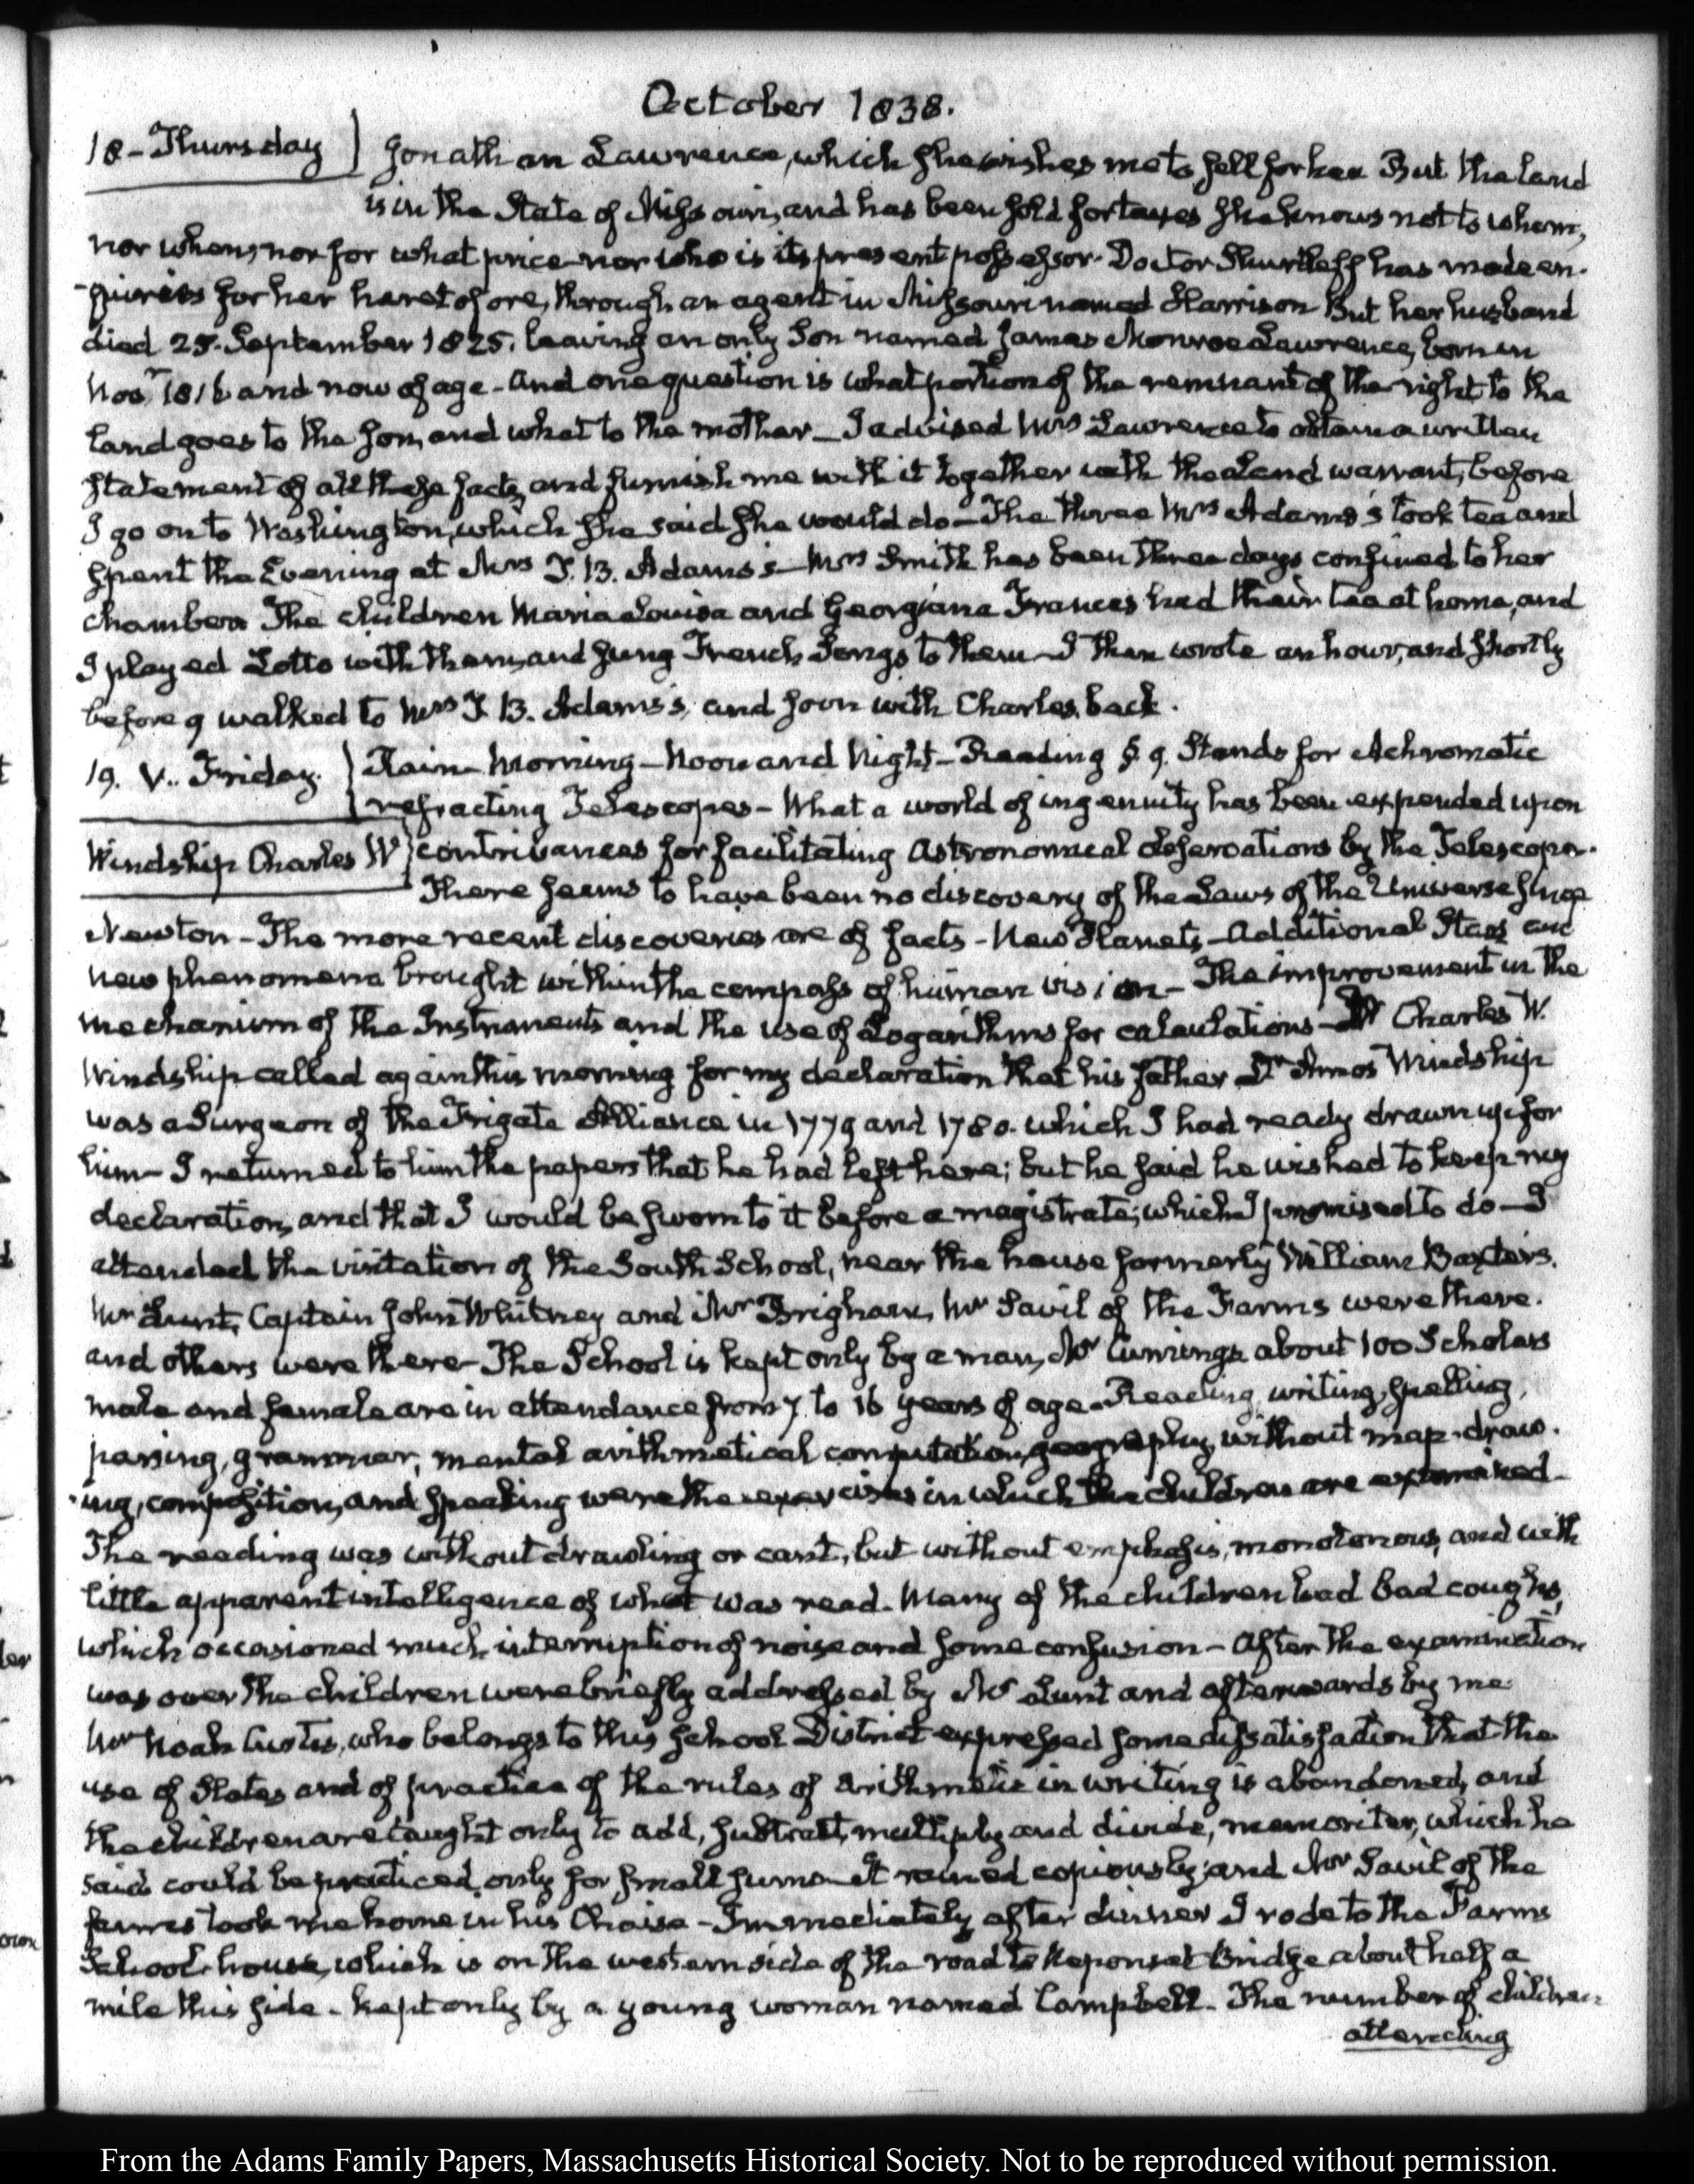 October 1838.
18 - Thursday
Jonathan Lawrence, which she wishes me to sell for her But the land
is in the State of Missouri, and has been sold for taxes she knows not to whom,
nor when, nor for what price nor who is its present possessor. Doctor Shurtleff has made en-
quiries for her heretofore, through an agent in Missouri named Harrison But her husband
died 25. September 1825. leaving an only Son named James Monroe Lawrence, born in
Novr 1816 and now of age - and one question is what portion of the remnant of the right to the
land goes to the son, and what to the mother - I advised Mrs Lawrence to obtain a written
statement of all these facts, and furnish me with it together with the Land warrant, before
I go on to Washington, which she said she would do - The three Mrs Adams's took tea and
spent the Evening at Mrs T. B. Adams's - Mrs Smith has been three days confined to her
chamber. The children Maria Louisa and Georgiana Frances had their tea at home, and
I played Lotto with them, and sung French Songs to them - I then wrote an hour, and shortly
before 9 walked to Mrs T. B. Adams's, and soon with Charles, back.
19. V.. Friday.
Rain - Morning - Noon and Night - Reading § 9. Stands for Achromatic
refracting Telescopes - What a world of ingenuity has been expended upon
Windship Charles W
contrivances for facilitating Astronomical observations by the Telescope.
There seems to have been no discovery of the Laws of the Universe since
Newton - The more recent discoveries are of facts - New Planets - Additional Stars and
new phenomena brought within the compass of human vision - The improvement in the
mechanism of the Instruments and the use of Logarithms for calculations - Dr Charles W.
Windship called again this morning for my declaration that his father Dr Amos Windship
was a Surgeon of the Frigate Alliance in 1779 and 1780. which I had ready drawn up for
him - I returned to him the papers that he had left here; but he said he wished to keep my
declaration, and that I would be sworn to it before a magistrate; which I promised to do - I
attended the visitation of the South School, near the house formerly William Baxter's.
Mr Lunt, Captain John Whitney and Mr Brigham, Mr Savil of the Farms were there.
and others were there - The School is kept only by a man, Mr Cumings about 100 Scholars
male and female are in attendance from 7. to 16 years of age - Reading, writing, spelling,
parsing, grammar, mental arithmetical computation, geography, without map-draw-
ing, composition, and speaking were the exercises in which the children are examined -
The reading was without drawling or cant, but without emphasis, monotonous, and with
little apparent intelligence of what was read. Many of the children had bad coughs,
which occasioned much interruption of noise and some confusion - After the examination
was over the children were briefly addressed by Mr Lunt and afterwards by me
Mr Noah Curtis, who belongs to this school District expressed some dissatisfaction that the
use of Slates and of practice of the rules of arithmetic in writing is abandoned, and
the children are taught only to add, subtract, multiply and divide, memoriter, which he
said could be practiced only for small sums - It rained copiously, and Mr Savil of the
farms took me home in his Chaise - Immediately after dinner I rode to the Farms
School-house, which is on the western side of the road to Neponset Bridge about half a
mile this side - kept only by a young woman named Campbell - The number of children
attending
From the Adams Family Papers, Massachusetts Historical Society. Not to be reproduced without permission.